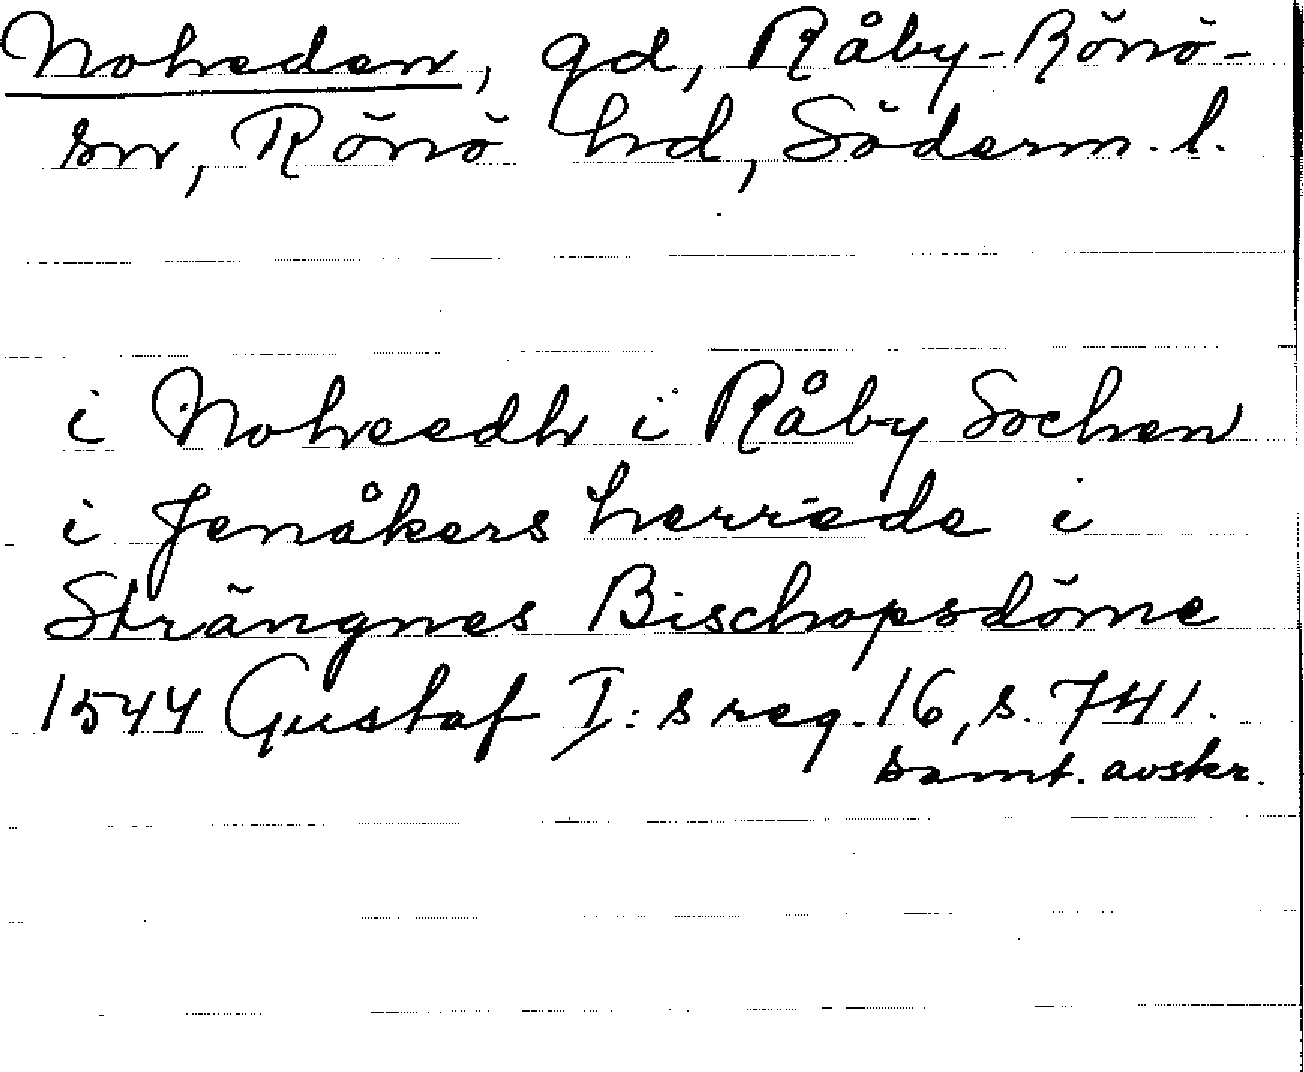 Noheden, gd, Råby-Rönö-
sn, Rönö hd, Söderm. l.
i Noheedh i Råby Sochen
i Jenåkers herrede i
Strängnes Bischopsdöme
1544 Gustaf I:s reg. 16, s. 741.
samt. avskr.